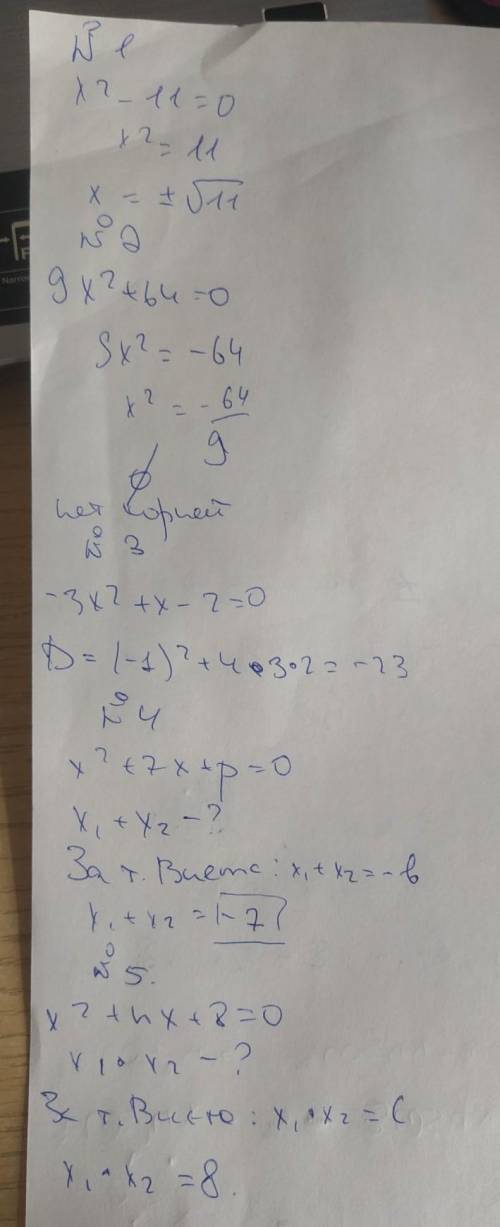 № 1
x² - 11 = 0
x² = 11
x = ±√11
№ 2
9x² + 64 = 0
9x² = -64
x² = -64/9
∅
нет корней
№ 3
-3x² + x - 2 = 0
D = (-1)² + 4•3•2 = -23
№ 4
x² + 7x + p = 0
x₁ + x₂ - ?
За т. Виета: x₁ + x₂ = -b
x₁ + x₂ = -7
№ 5.
x² + nx + 8 = 0
x₁ • x₂ - ?
За т. : x₁ • x₂ = c
x₁ • x₂ = 8.
Narrow